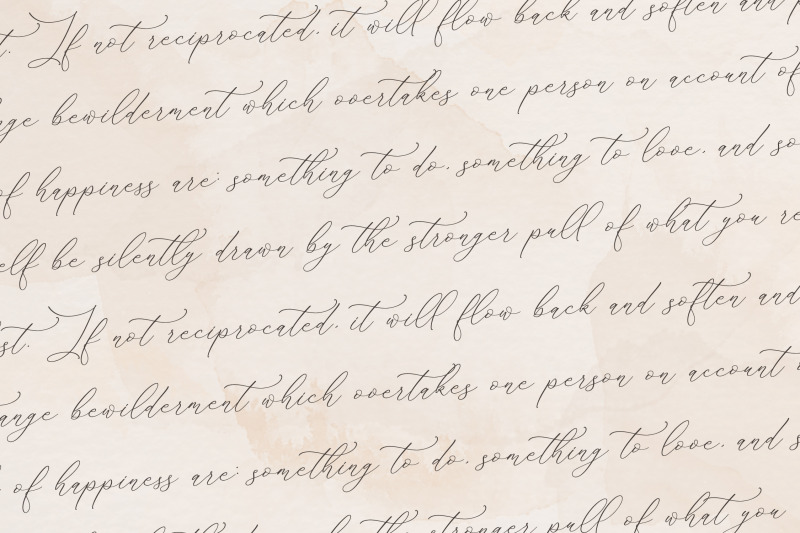 t. If not reciprocated, it will flow back and soften and
nge bewilderment which overtakes one person on account of
of happiness are: something to do, something to love, and so
elf be silently drawn by the stronger pull of what you re
st. If not reciprocated, it will flow back and soften and
ange bewilderment which overtakes one person on account
of happiness are: something to do, something to love, and s
stronger pull of what you